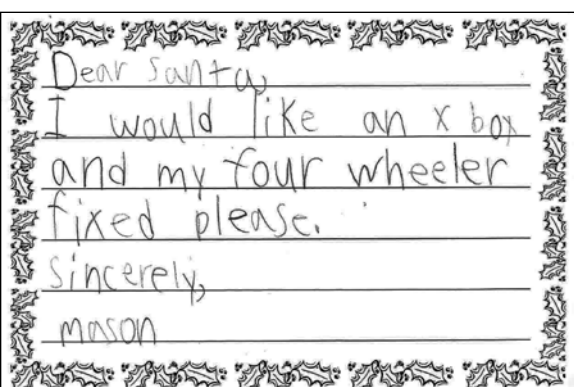 Dear Santa,
I would like an x box
and my four wheeler
fixed please.
Sincerely,
mason